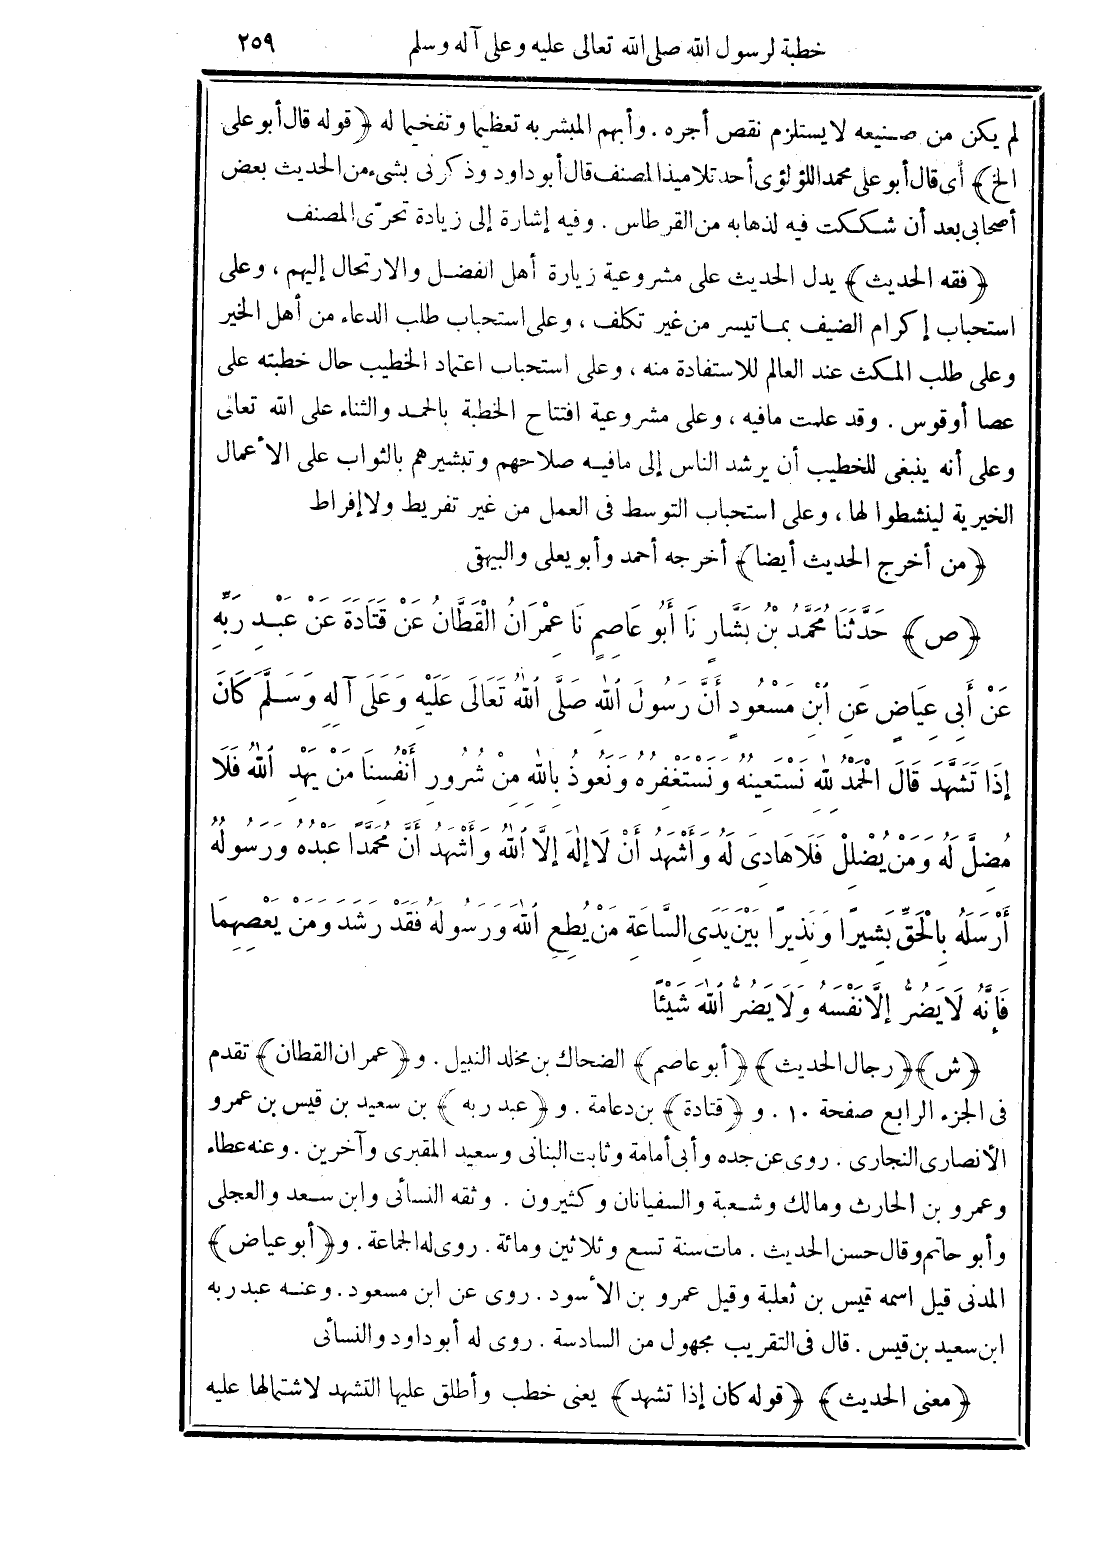 خطبة لرسول الله صلى الله تعالى عليه وعلى آله وسلم ٢٥٩
لم يكن من صنيعه لا يستلزم نقص أجره . وأبهم المبشر به تعظيما وتفخيما له ﴿ قوله قال أبو على
الخ ﴾ أى قال أبو على محمد اللؤلؤى أحد تلاميذ المصنف قال أبو داود وذكرنى بشىء من الحديث بعض
أصحابى بعد أن شككت فيه لذهابه من القرطاس . وفيه إشارة إلى زيادة تحرّى المصنف
﴿ فقه الحديث ﴾ يدل الحديث على مشروعية زيارة أهل الفضل والارتحال إليهم ، وعلى
استحباب إكرام الضيف بما تيسر من غير تكلف ، وعلى استحباب طلب الدعاء من أهل الخير
وعلى طلب المكث عند العالم للاستفادة منه ، وعلى استحباب اعتماد الخطيب حال خطبته على
عصا أو قوس . وقد علمت مافيه ، وعلى مشروعية افتتاح الخطبة بالحمد والثناء على الله تعالى
وعلى أنه ينبغى للخطيب أن يرشد الناس إلى مافيه صلاحهم وتبشيرهم بالثواب على الأعمال
الخيرية لينشطوا لها ، وعلى استحباب التوسط فى العمل من غير تفريط ولا إفراط
﴿ من أخرج الحديث أيضا ﴾ أخرجه أحمد وأبو يعلى والبيهقى
﴿ ص ﴾ حَدَّثَنَا مُحَمَّدُ بْنُ بَشَّارٍ نَا أَبُو عَاصِمٍ نَا عِمْرَانُ الْقَطَّانُ عَنْ قَتَادَةَ عَنْ عَبْدِ رَبِّهِ
عَنْ أَبِى عِيَاضٍ عَنِ ابْنِ مَسْعُودٍ أَنَّ رَسُولَ اللهِ صَلَّى اللهُ تَعَالَى عَلَيْهِ وَعَلَى آلِهِ وَسَلَّمَ كَانَ
إِذَا تَشَهَّدَ قَالَ الْحَمْدُ لِلهِ نَسْتَعِينُهُ وَنَسْتَغْفِرُهُ وَنَعُوذُ بِاللهِ مِنْ شُرُورِ أَنْفُسِنَا مَنْ يَهْدِ اللهُ فَلَا
مُضِلَّ لَهُ وَمَنْ يُضْلِلْ فَلَا هَادِىَ لَهُ وَأَشْهَدُ أَنْ لَا إِلهَ إِلَّا اللهُ وَأَشْهَدُ أَنَّ مُحَمَّدًا عَبْدُهُ وَرَسُولُهُ
أَرْسَلَهُ بِالْحَقِّ بَشِيرًا وَنَذِيرًا بَيْنَ يَدَىِ السَّاعَةِ مَنْ يُطِعِ اللهَ وَرَسُولَهُ فَقَدْ رَشَدَ وَمَنْ يَعْصِهِمَا
فَإِنَّهُ لَا يَضُرُّ إِلَّا نَفْسَهُ وَلَا يَضُرُّ اللهَ شَيْئًا
﴿ ش ﴾ ﴿ رجال الحديث ﴾ ﴿ أبو عاصم ﴾ الضحاك بن مخلد النبيل . و﴿ عمران القطان ﴾ تقدم
فى الجزء الرابع صفحة ١٠ . و ﴿ قتادة ﴾ بن دعامة . و ﴿ عبد ربه ﴾ بن سعيد بن قيس بن عمرو
الأنصارى النجارى . روى عن جده وأبى أمامة وثابت البنانى وسعيد المقبرى وآخرين . وعنه عطاء
وعمرو بن الحارث ومالك وشعبة والسفيانان وكثيرون . وثقه النسائى وابن سعد والعجلى
وأبو حاتم وقال حسن الحديث . مات سنة تسع وثلاثين ومائة . روى له الجماعة . و﴿ أبو عياض ﴾
المدنى قيل اسمه قيس بن ثعلبة وقيل عمرو بن الأسود . روى عن ابن مسعود . وعنه عبد ربه
ابن سعيد بن قيس . قال فى التقريب مجهول من السادسة . روى له أبو داود والنسائى
﴿ معنى الحديث ﴾ ﴿ قوله كان إذا تشهد ﴾ يعنى خطب وأطلق عليها التشهد لاشتمالها عليه